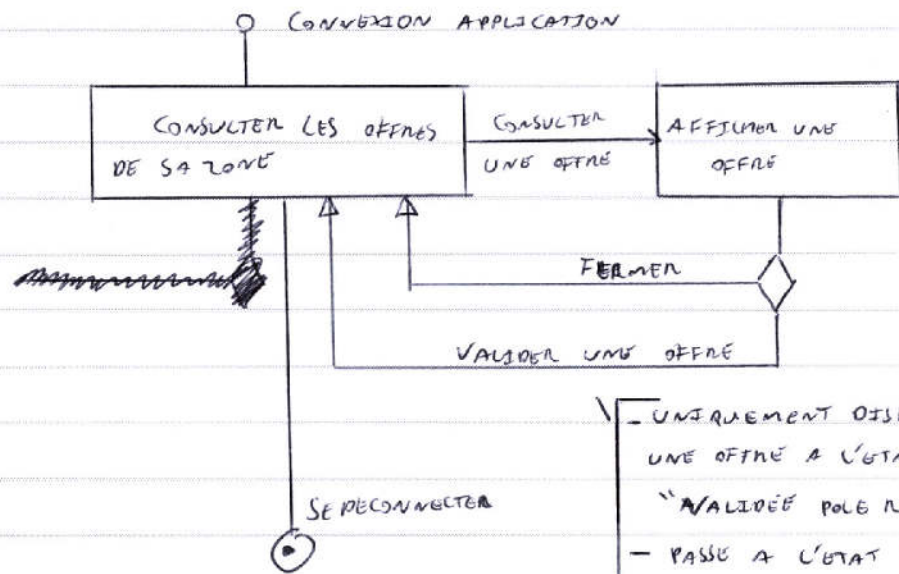 CONNEXION APPLICATION
CONSULTER LES OFFRES
DE SA ZONE
CONSULTER
UNE OFFRE
AFFICHER UNE
OFFRE
FERMER
VALIDER UNE OFFRE
SE DECONNECTER
- UNIQUEMENT
UNE OFFRE A L'ETA
"VALIDÉE POLE
- PASSE A L'ETAT